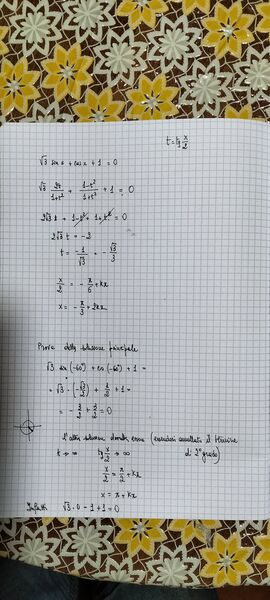 t = tg x/2
√3 sin x + cos x + 1 = 0
√3 2t/(1+t²) + (1-t²)/(1+t²) + 1 = 0
2√3 t + 1 - t² + 1 + t² = 0
2√3 t = -2
t = -1/√3 = -√3/3
x/2 = -π/6 + kπ
x = -π/3 + 2kπ
Prova della soluzione principale
√3 sin(-60°) + cos(-60°) + 1 =
= √3 · (-√3/2) + 1/2 + 1 =
= -3/2 + 3/2 = 0
L'altra soluzione dovrebbe essere (essendosi annullato il termine
di 2° grado)
t → ∞ tg x/2 → ∞
x/2 = π/2 + kπ
x = π + kπ
Infatti √3 · 0 - 1 + 1 = 0